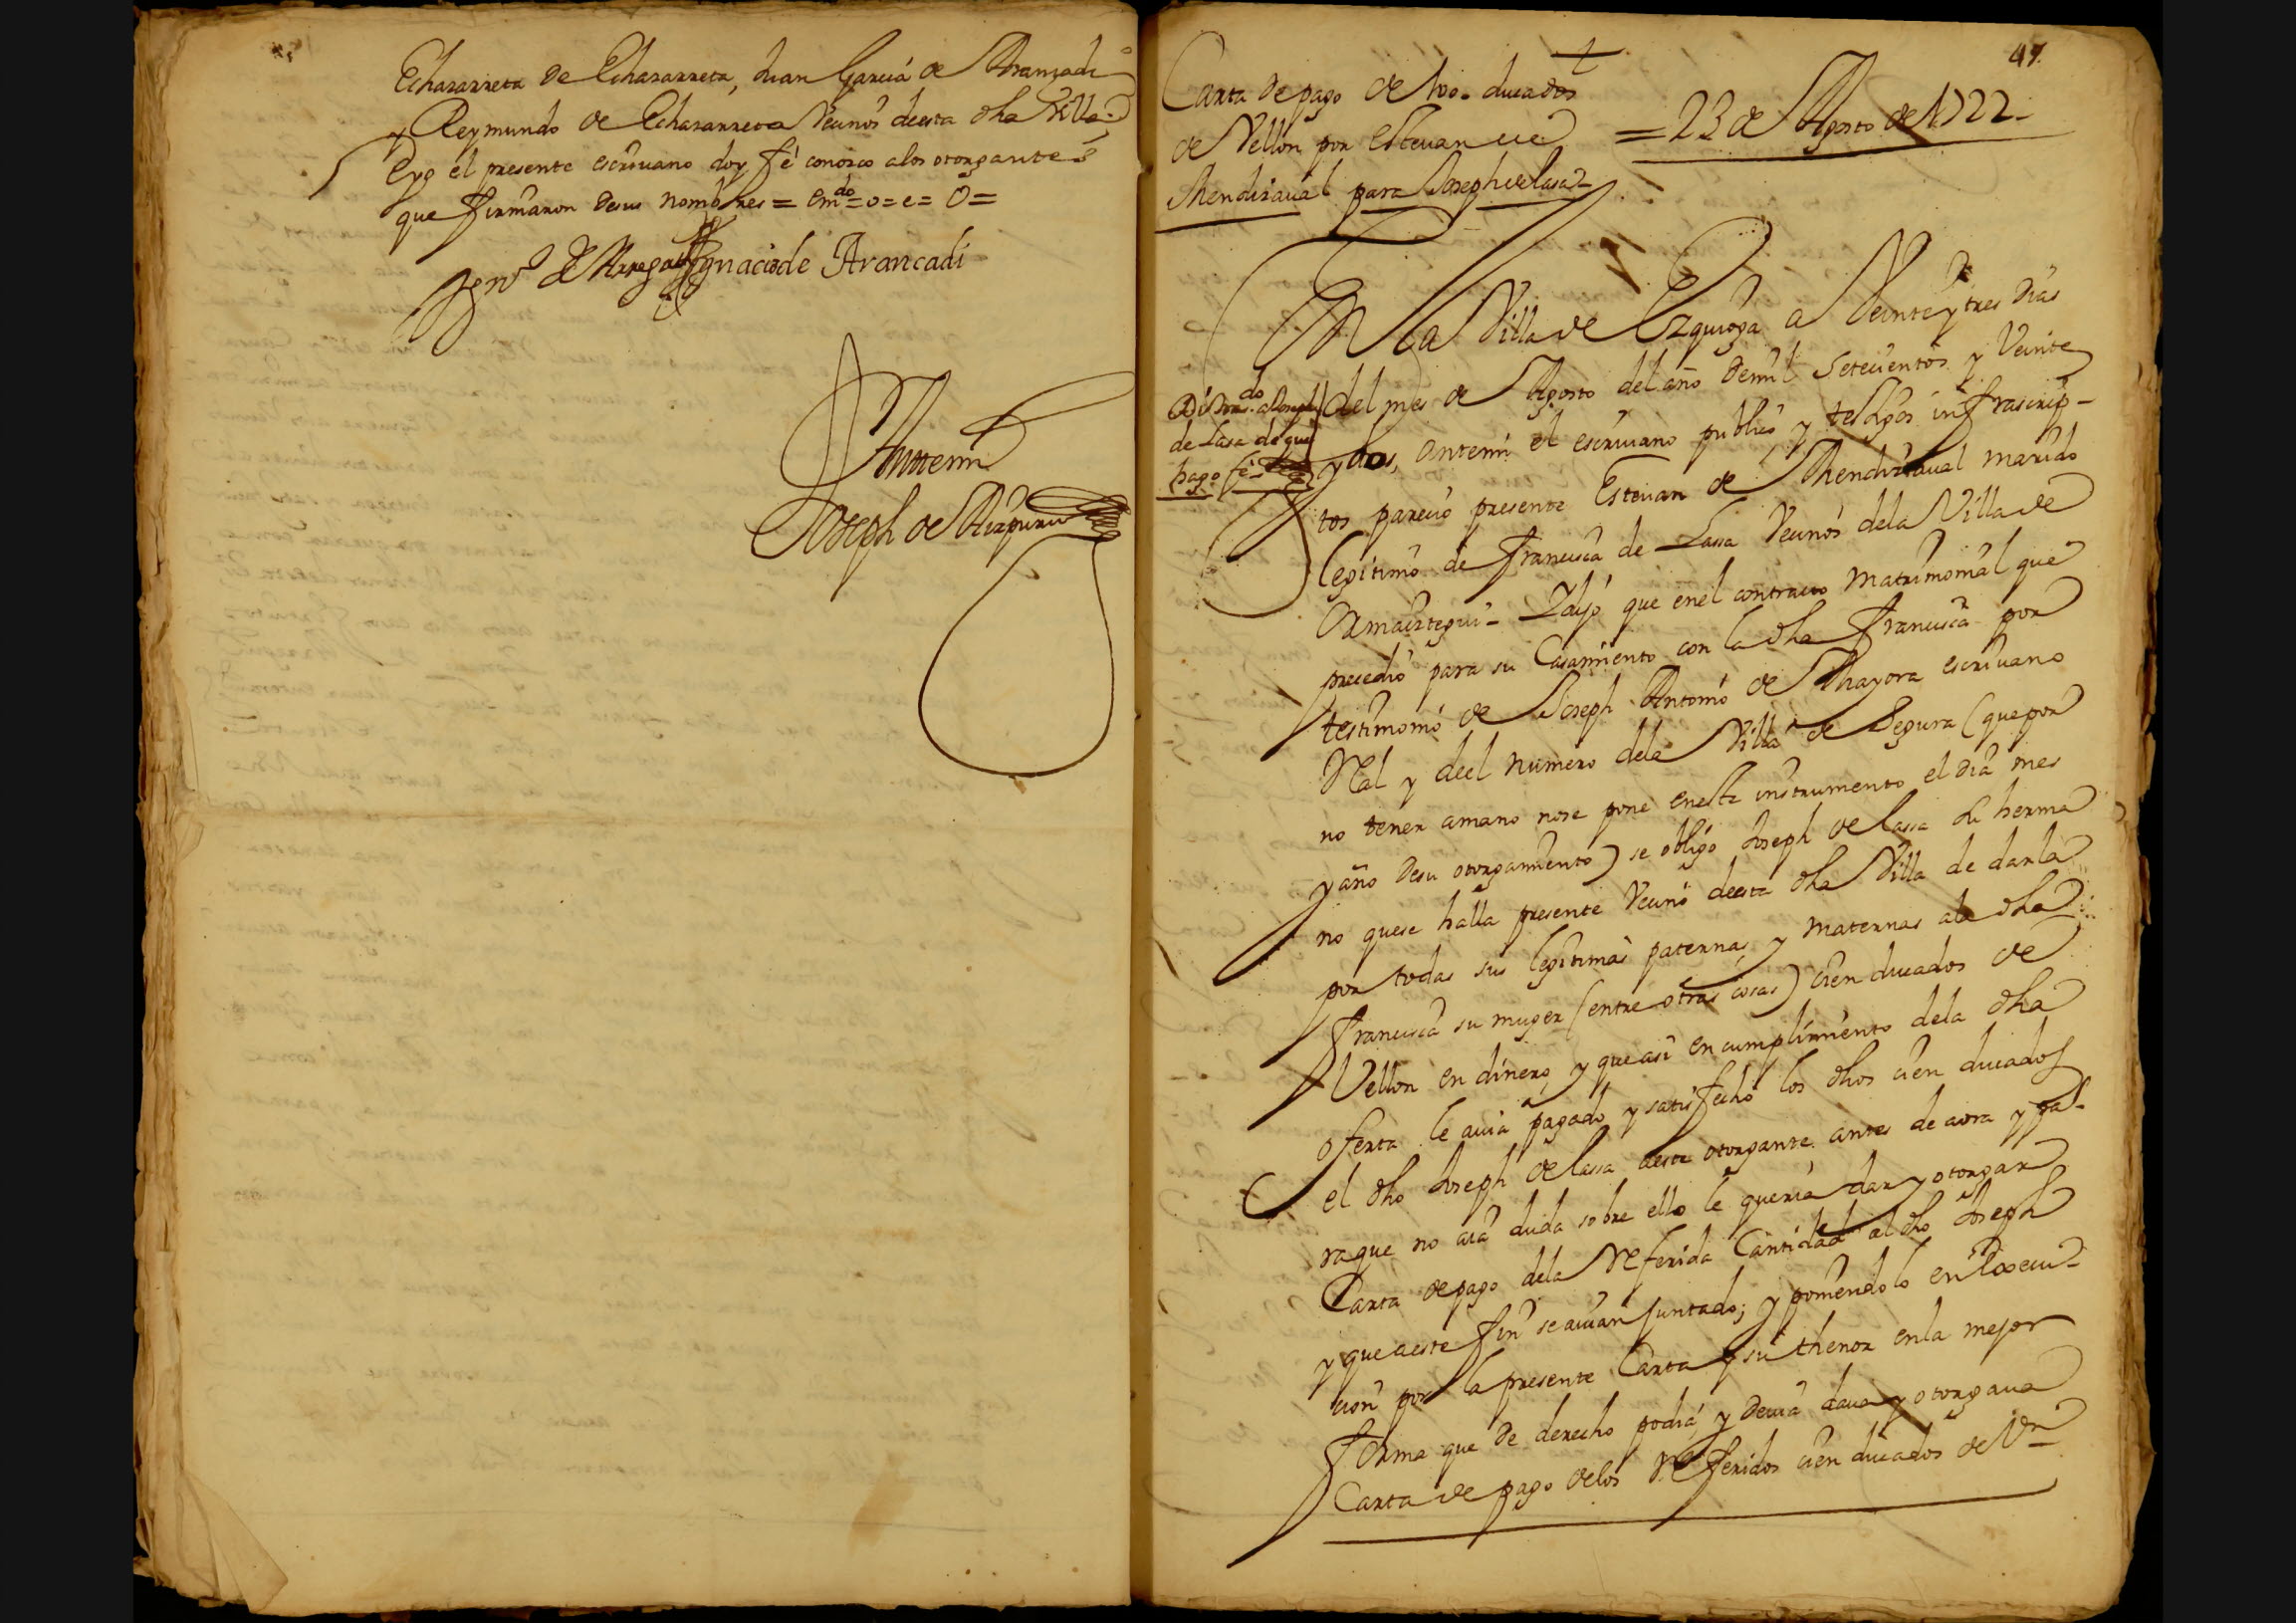 Echazarreta de Echazarreta, Juan Garcia de Aranzadi
y Reymundo de Echazarreta vecinos de esta dha Villa =
E yo el presente escrivano doy feé conozco alos otorgantes
que firmaron desus nombres = Emdo = o = e = O =
de Arregui Ygnacio de Arancadi
Antemi
Joseph de Aizpuru
47.
Carta de pago de 100 ducados
de Vellon por estevan de
Mendizaval para Joseph de lasa
= 23 de Agosto de 1722 -
En la Villa de Ezquioga a Veinte y tres dias
del mes de Agosto del año demil Setecientos y Veinte
y dos, antemi el escrivano publico y testigos infrascrip-
tos parecio presente Estevan de Mendizaval marido
legitimo de Francisca de Lassa Vecinos dela Villa de
Ormaiztegui - Y dijo que enel contracto matrimonial que
precedio para su Casamiento con la dha Francisca por
testimonio de Joseph Antonio de Mayora escrivano
Real y deel numero dela Villa de Segura (que por
no tener amano nose pone eneste instrumento el dia mes
y año desu otorgamiento) se obligo Joseph de lassa su herma
no quese halla presente Vecino deesta dha Villa de darla
por todas sus legitimas paternas y maternas ala dha
Francisca su muger (entre otras cosas) cien ducados de
Vellon en dinero, y que asi en cumplimiento dela dha
oferta le avia pagado y satisfecho los dhos cien ducados
el dho Joseph de lassa aeste otorgante antes de aora y pa-
ra que no aia duda sobre ello le queria dar y otorgar
Carta de pago dela Referida Cantidad al dho Joseph
y que aeste fin se avian juntado; y poniendolo en execu-
cion por la presente Carta y su thenor enla mejor
forma que de derecho podia, y devia dava y otorgava
Carta de pago delos Referidos cien ducados de Vn
Di a Joseph
de Lasa de que
hago fe